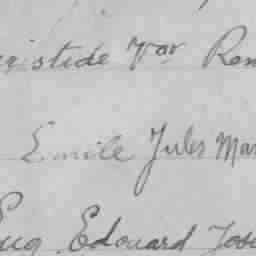 istide Vor Rem
Emile Jules Mar
Eug Edouard Jose